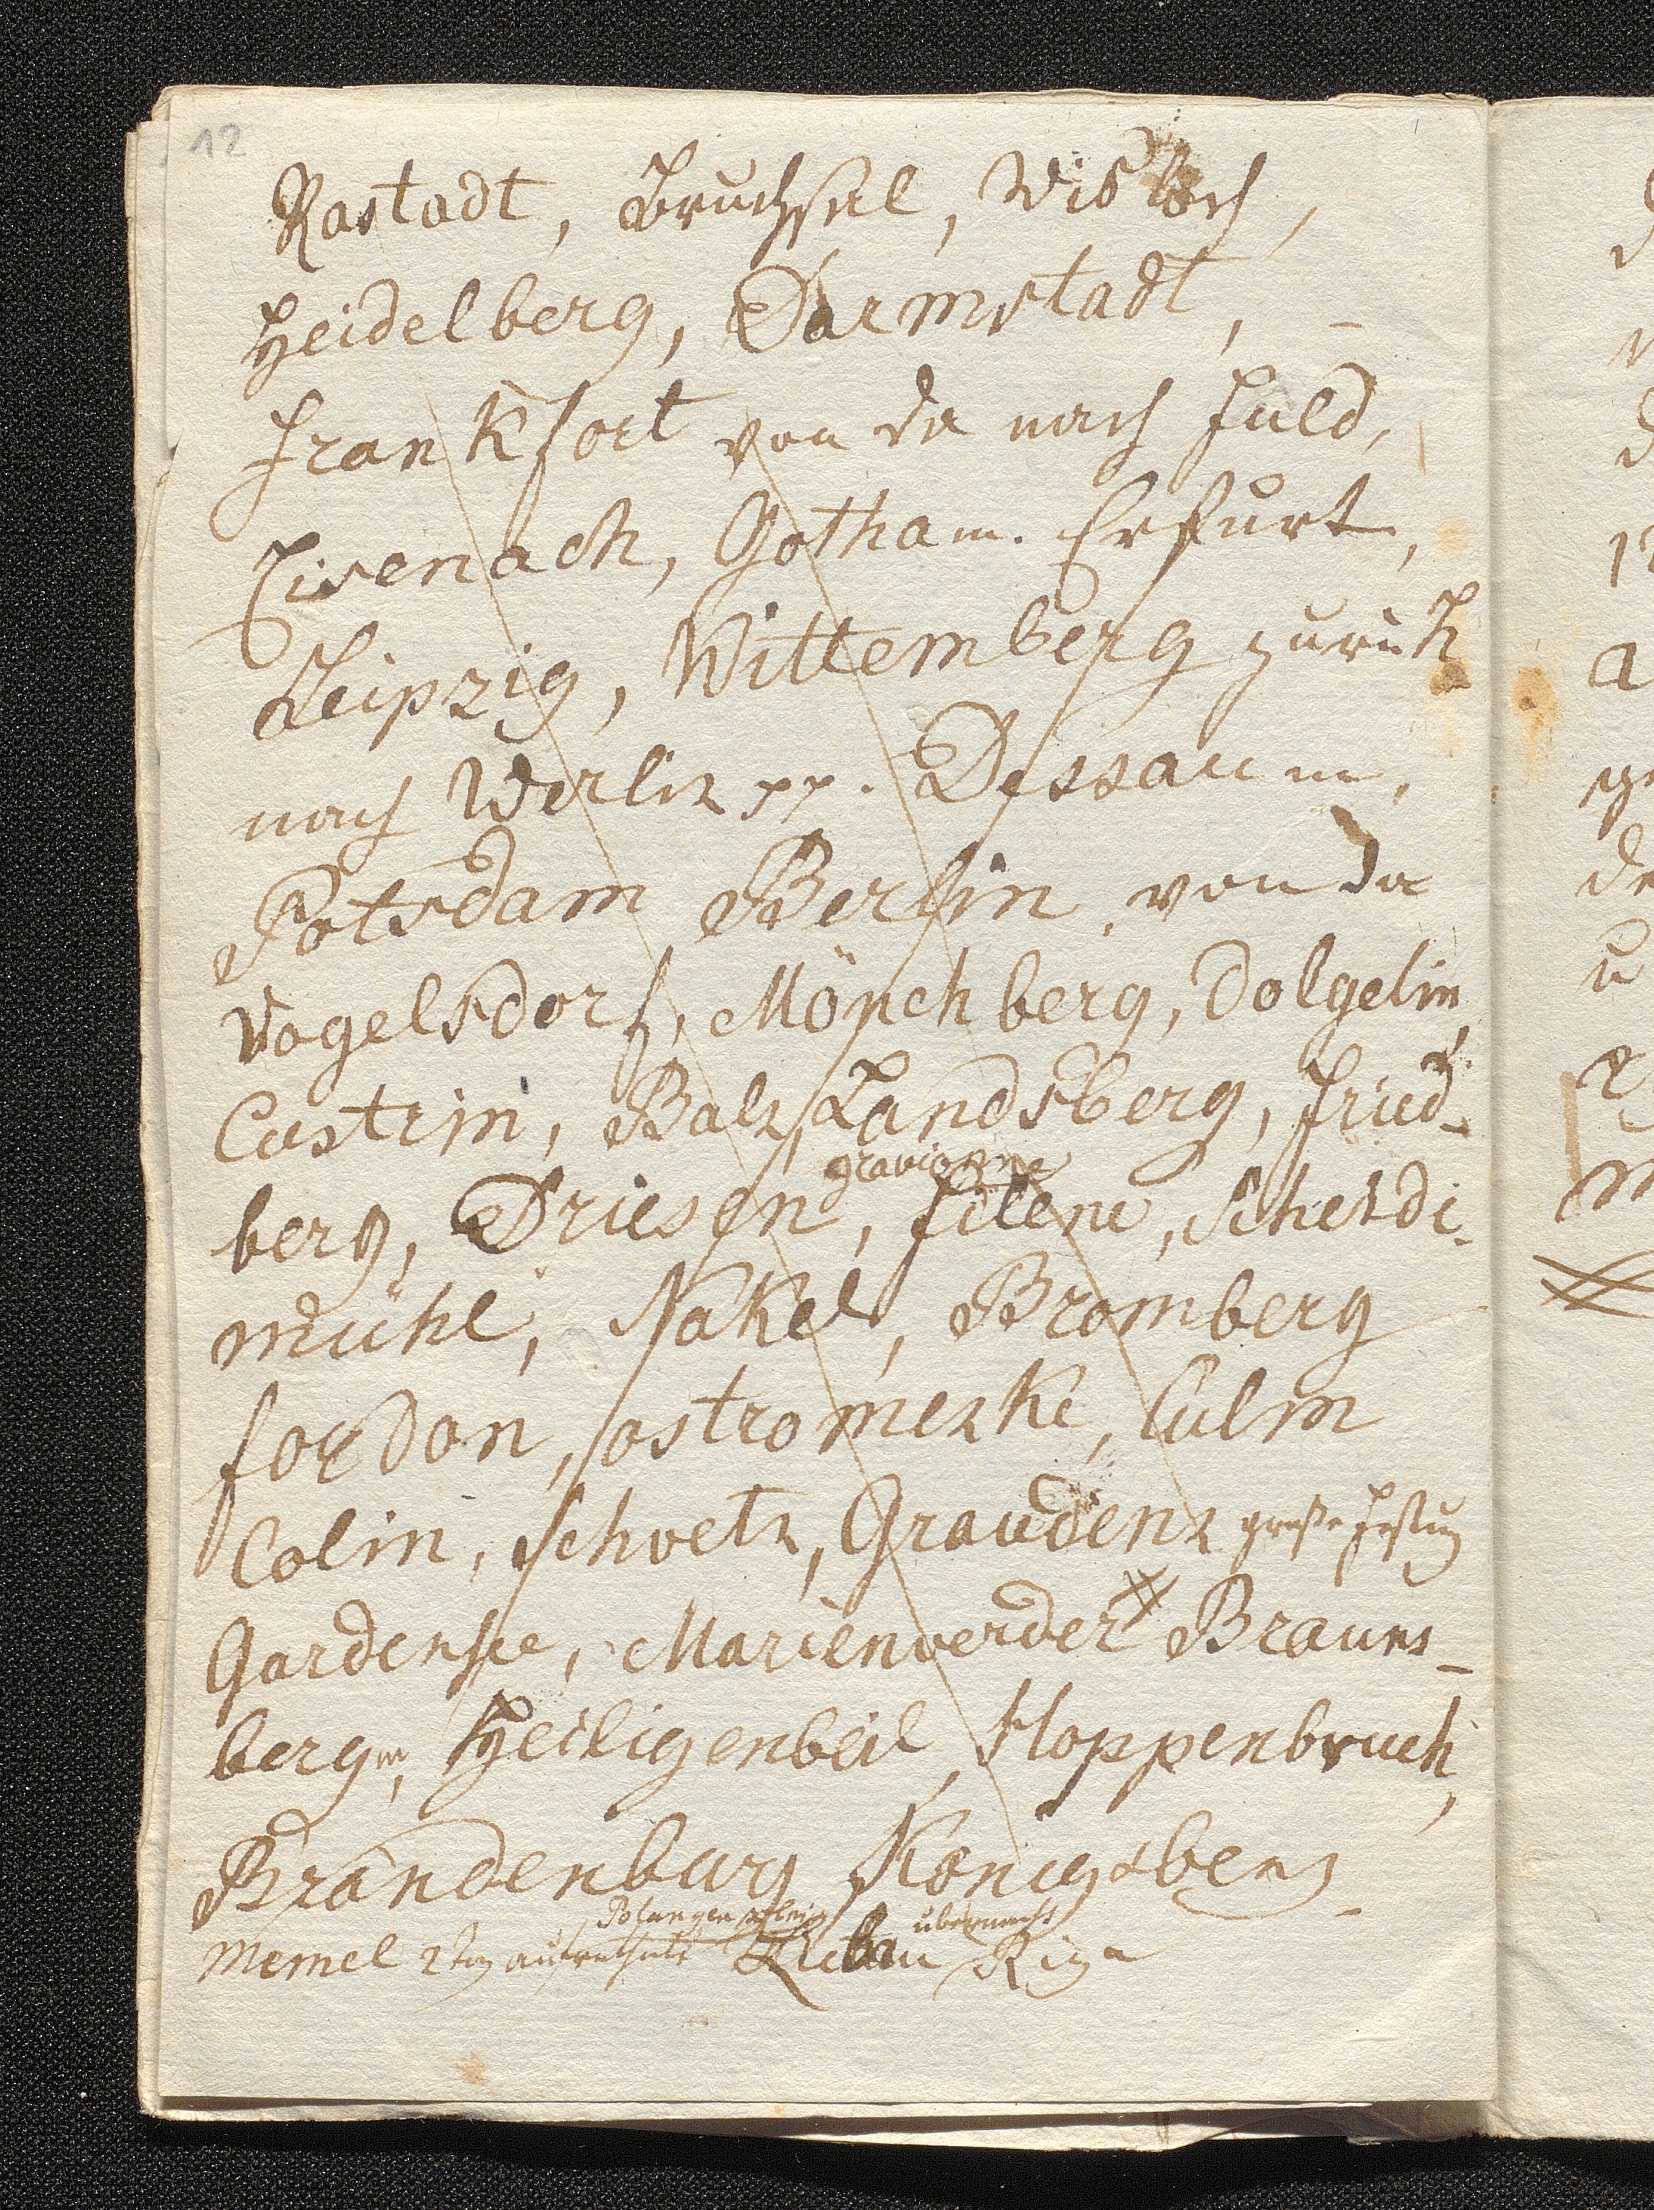 12
Rastadt, Bruchsal, Visloch,
Heidelberg, Darmstadt, –
Frankfort von da nach Fuld,
Eisenach, Gotha m. Erfurt,
Leipzig, Wittemberg zurük
nach Werliz pp. Dessau m,
Potsdam Berlin von da
Vogelsdorf, Mönchberg, Dolgelin,
Custrin, Balz, Landsberg, Fried-
berg, Driesen, Filene, Scheidi-
mühl, Nakel, Bromberg
fordon, ostromezke, Culm
Colin, Schvetz, Graudenz große Festung
Gardensee, Marienverder # Brauns-
berg m, Heiligenbeil, Hoppenbruch,
Brandenburg Königsberg
Polangen
übernacht
Memel 2 tag aufenthalt Liebau Riga